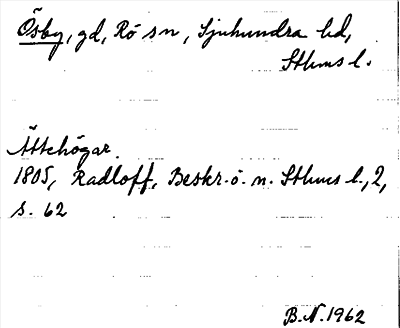 Ösby, gd, Rö sn, Sjuhundra hd,
Sthms l.
Ättehögar.
1805, Radloff, Beskr. ö. n. Sthms l., 2,
s. 62
B.N. 1962